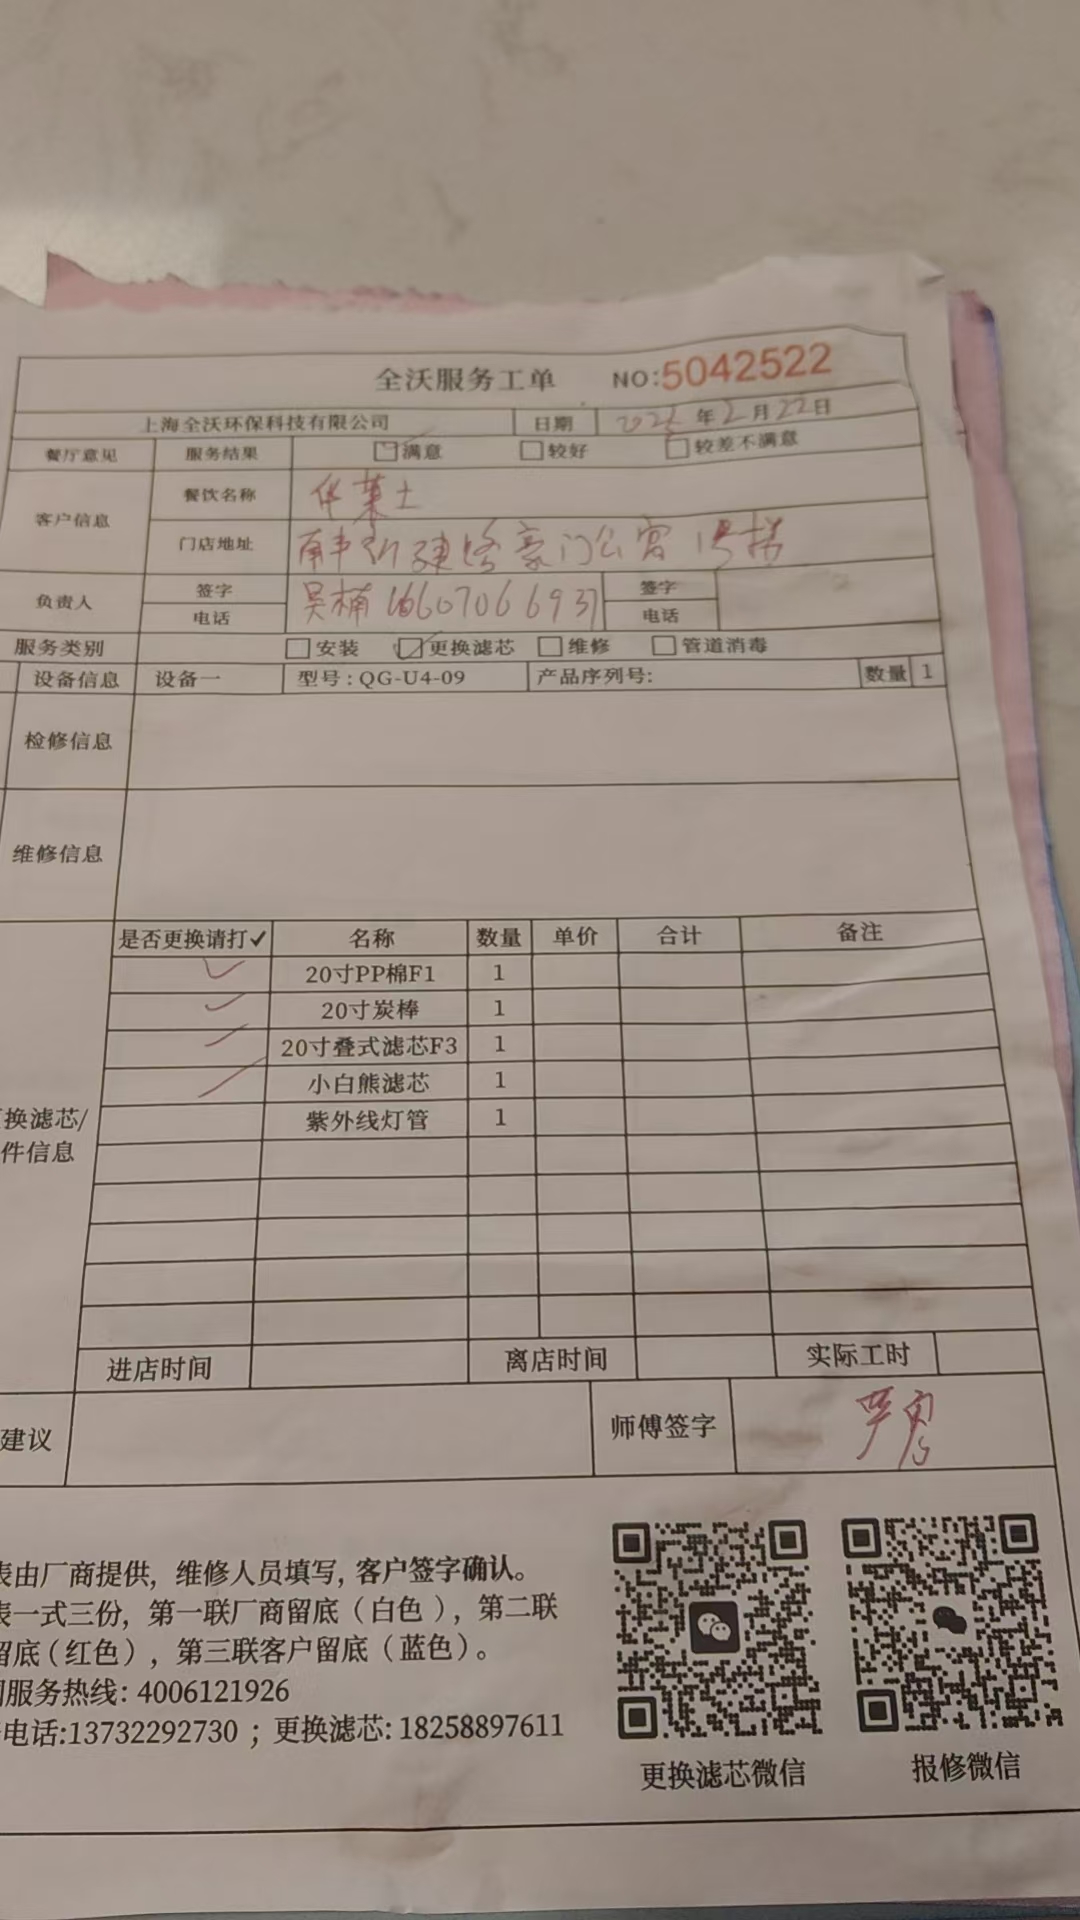 全沃服务工单 NO:5042522
上海全沃环保科技有限公司 日期 2026年2月22日
餐厅意见 服务结果 满意 较好 较差不满意
客户信息 餐饮名称 华莱士
门店地址 南丰新建路豪门公寓1号楼
负责人 签字 吴楠 16607066937 签字
电话 电话
服务类别 安装 更换滤芯 维修 管道消毒
设备信息 设备一 型号:QG-U4-09 产品序列号: 数量 1
检修信息
维修信息
是否更换请打✓ 名称 数量 单价 合计 备注
✓ 20寸PP棉F1 1
✓ 20寸炭棒 1
✓ 20寸叠式滤芯F3 1
✓ 小白熊滤芯 1
紫外线灯管 1
换滤芯/
件信息
进店时间 离店时间 实际工时
建议 师傅签字
表由厂商提供, 维修人员填写, 客户签字确认。
表一式三份, 第一联厂商留底(白色), 第二联
留底(红色), 第三联客户留底(蓝色)。
服务热线: 4006121926
电话:13732292730 ; 更换滤芯: 18258897611
更换滤芯微信 报修微信